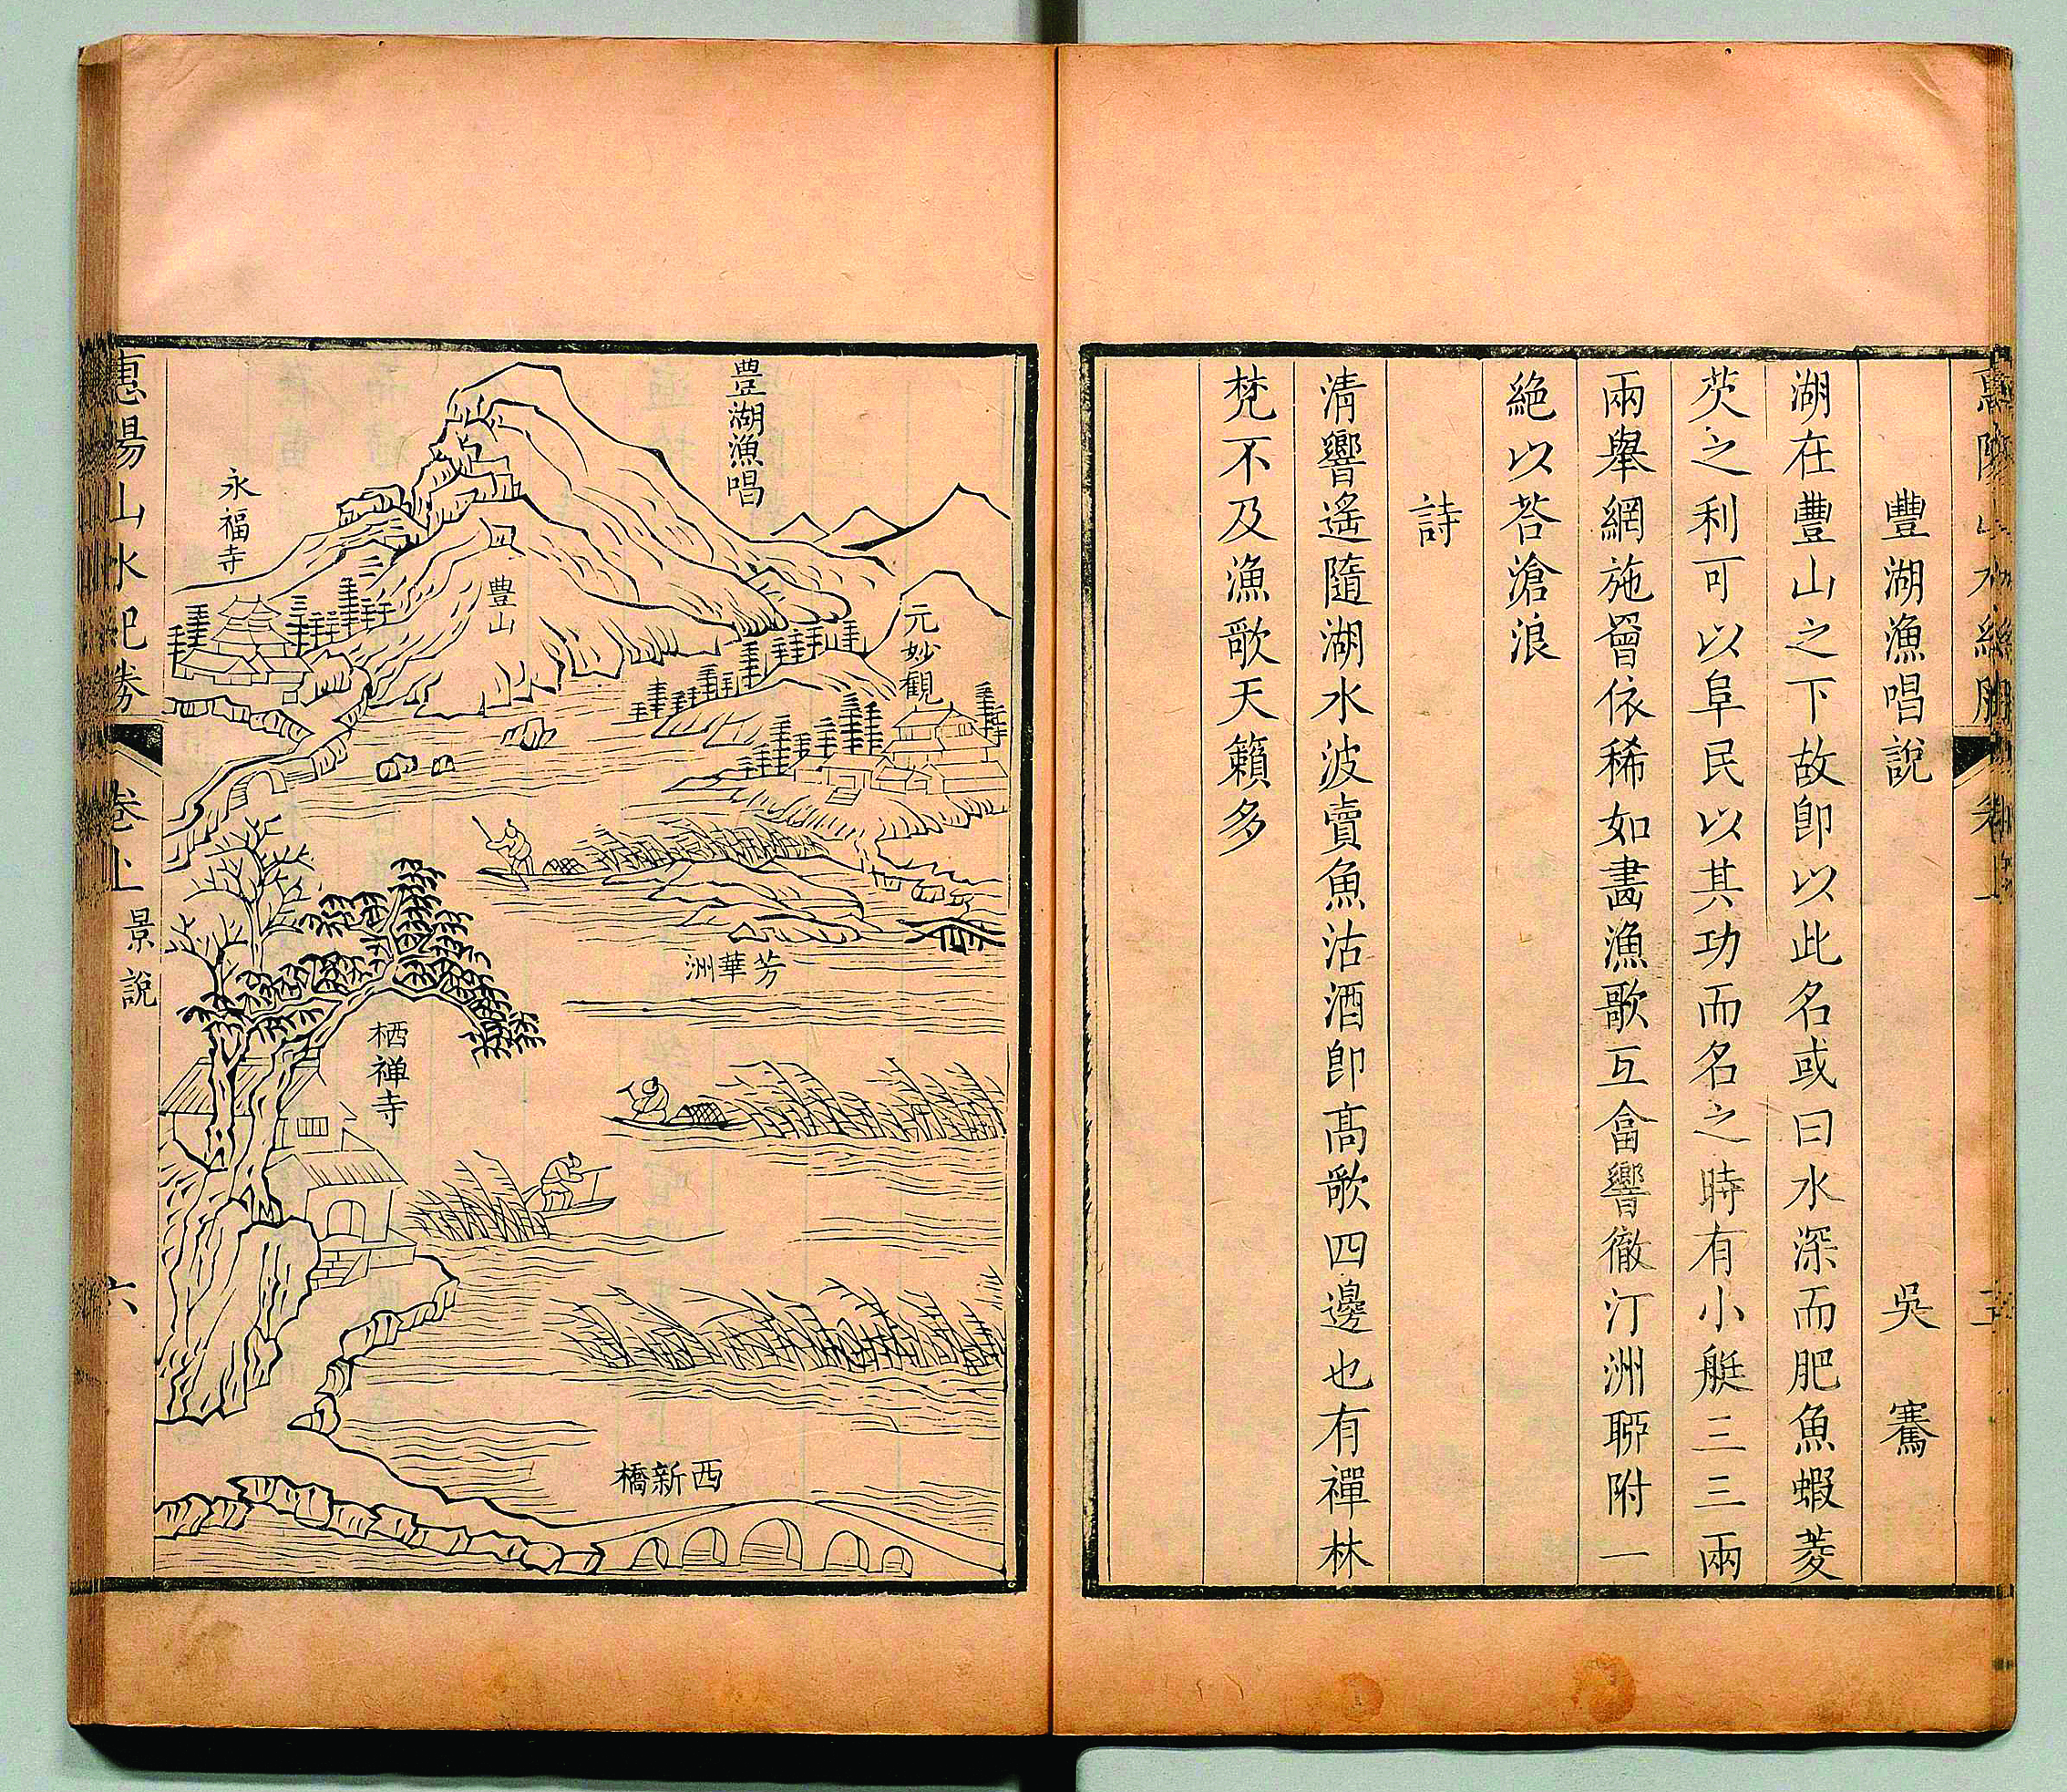 豐湖漁唱說 吳騫
湖在豐山之下故卽以此名或曰水深而肥魚蝦菱
芡之利可以阜民以其功而名之時有小艇三三兩
兩舉網施罾依稀如畵漁歌互畣響徹汀洲聊附一
絶以荅滄浪
詩
清響遙隨湖水波賣魚沽酒卽高歌四邊也有禪林
梵不及漁歌天籟多
豊湖漁唱
元妙觀
豊山
永福寺
芳華洲
栖禅寺
西新橋
惠陽山水紀勝 卷上 景說 六